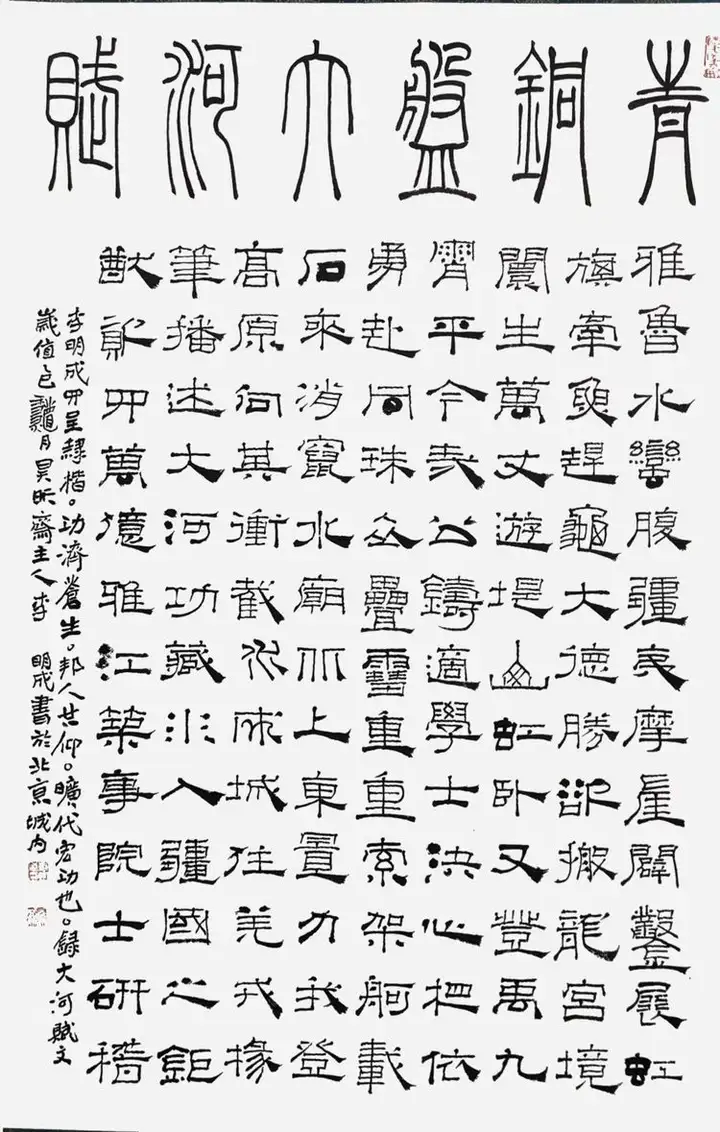 青銅盤大河賦
雅魯水蠻腹疆摩崖闢鑿展虹
旗牽趕龜大德勝卻搬龍宮境
生萬丈遊堤虹臥又登禹九
平今公鑄適學士決心把依
勇赴同珠众疊靈重重索架舸載
石來消竄水廟上東置力我登
高原向其衝截床城往羌戎椽
筆播述大河功藏入疆國之鉅
猷萬億雅江築事院士研稽
李明成呈隸楷。功濟蒼生。邦人共仰。曠代宏功也。録大河賦文
歲值月昊昕齋主人李明成書於北京城内